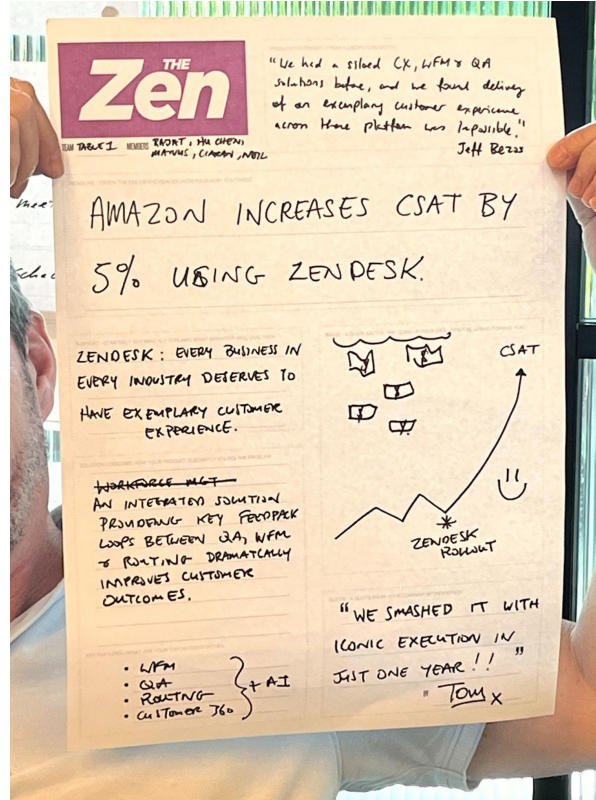 THE
Zen
TEAM TABLE 1 MEMBERS RAJAT, HU CHEN,
MATHIS, CIARAN, NEIL
"We had a siloed CX, WFM & QA
solutions before, and we found delivery
of an exemplary customer experience
across these platform was impossible."
Jeff Bezos
AMAZON INCREASES CSAT BY
5% USING ZENDESK.
ZENDESK: EVERY BUSINESS IN
EVERY INDUSTRY DESERVES TO
HAVE EXEMPLARY CUSTOMER
EXPERIENCE.
WORKFORCE MGT
AN INTEGRATED SOLUTION
PROVIDING KEY FEEDBACK
LOOPS BETWEEN QA, WFM
& ROUTING DRAMATICALLY
IMPROVES CUSTOMER
OUTCOMES.
• WFM
• QA
• ROUTING
• CUSTOMER 360
+ AI
CSAT
ZENDESK
ROLLOUT
"WE SMASHED IT WITH
ICONIC EXECUTION IN
JUST ONE YEAR!!"
BY Tom x